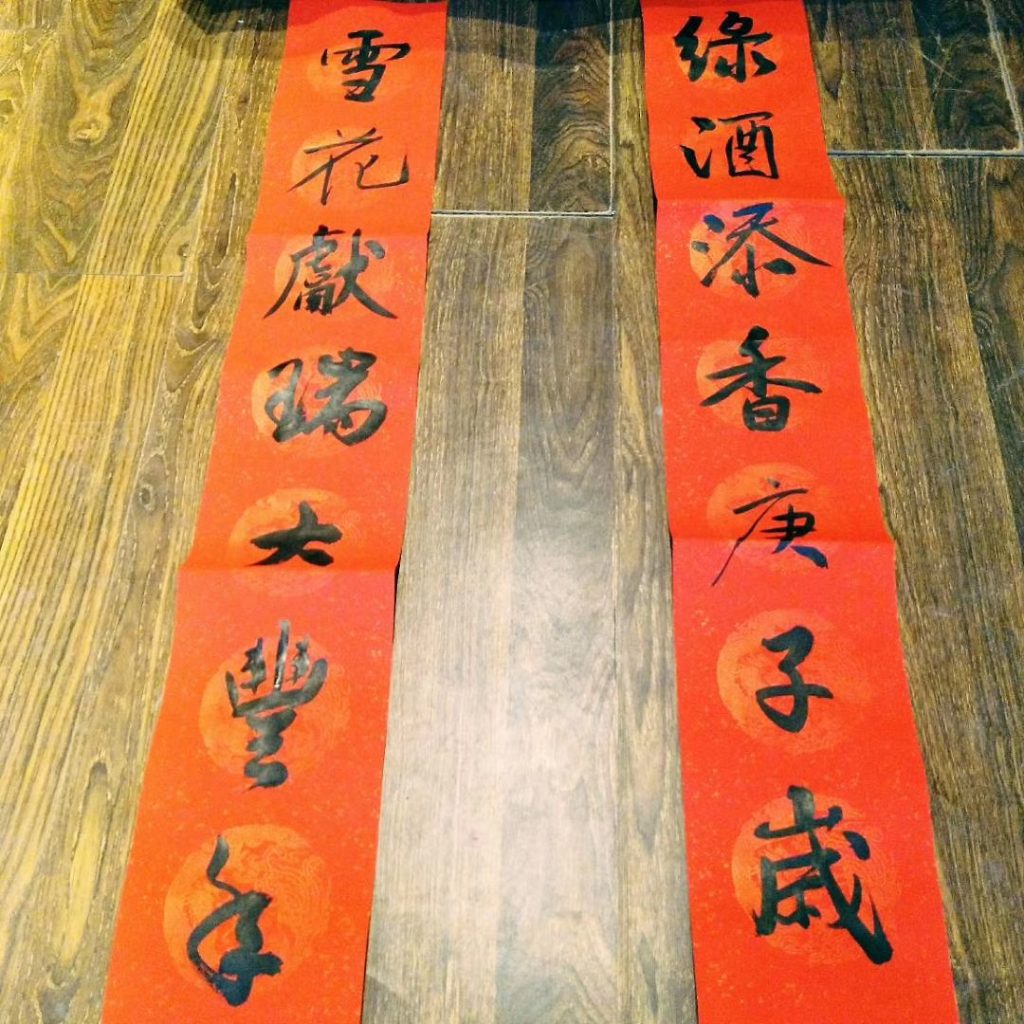 綠酒添香庚子歲
雪花獻瑞大豐年